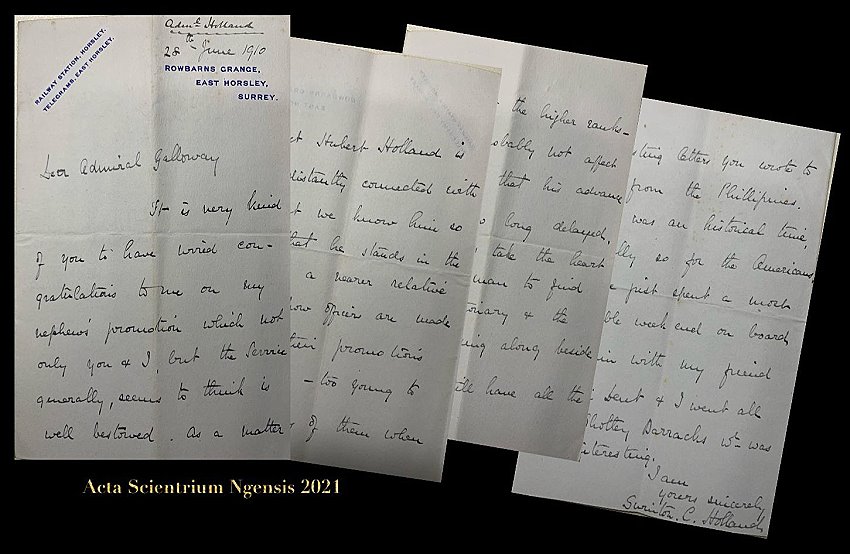 RAILWAY STATION, HORSLEY.
TELEGRAMS, EAST HORSLEY.
Adml Holland
28th June 1910
ROWBARNS GRANGE,
EAST HORSLEY,
SURREY.
Dear Admiral Galloway
It is very kind
of you to have wired con-
gratulations to me on my
nephew's promotion which not
only you & I, but the Service
generally, seems to think is
well bestowed. As a matter
ct Hubert Holland is
distantly connected with
t we know him so
that he stands in the
a nearer relative
how officers are made
their promotions
– too young to
of them when
the higher ranks –
obably not affect
that his advance
long delayed.
take the heart
man to find
tionary & the
ing along beside
ill have all the
sting letters you wrote to
from the Phillipines.
was an historical time,
lly so for the Americans
just spent a most
ble week end on board
in with my friend
Bent & I went all
Shotley Barracks wh was
interesting.
I am
yours sincerely,
Swinton. C. Holland
Acta Scientrium Ngensis 2021